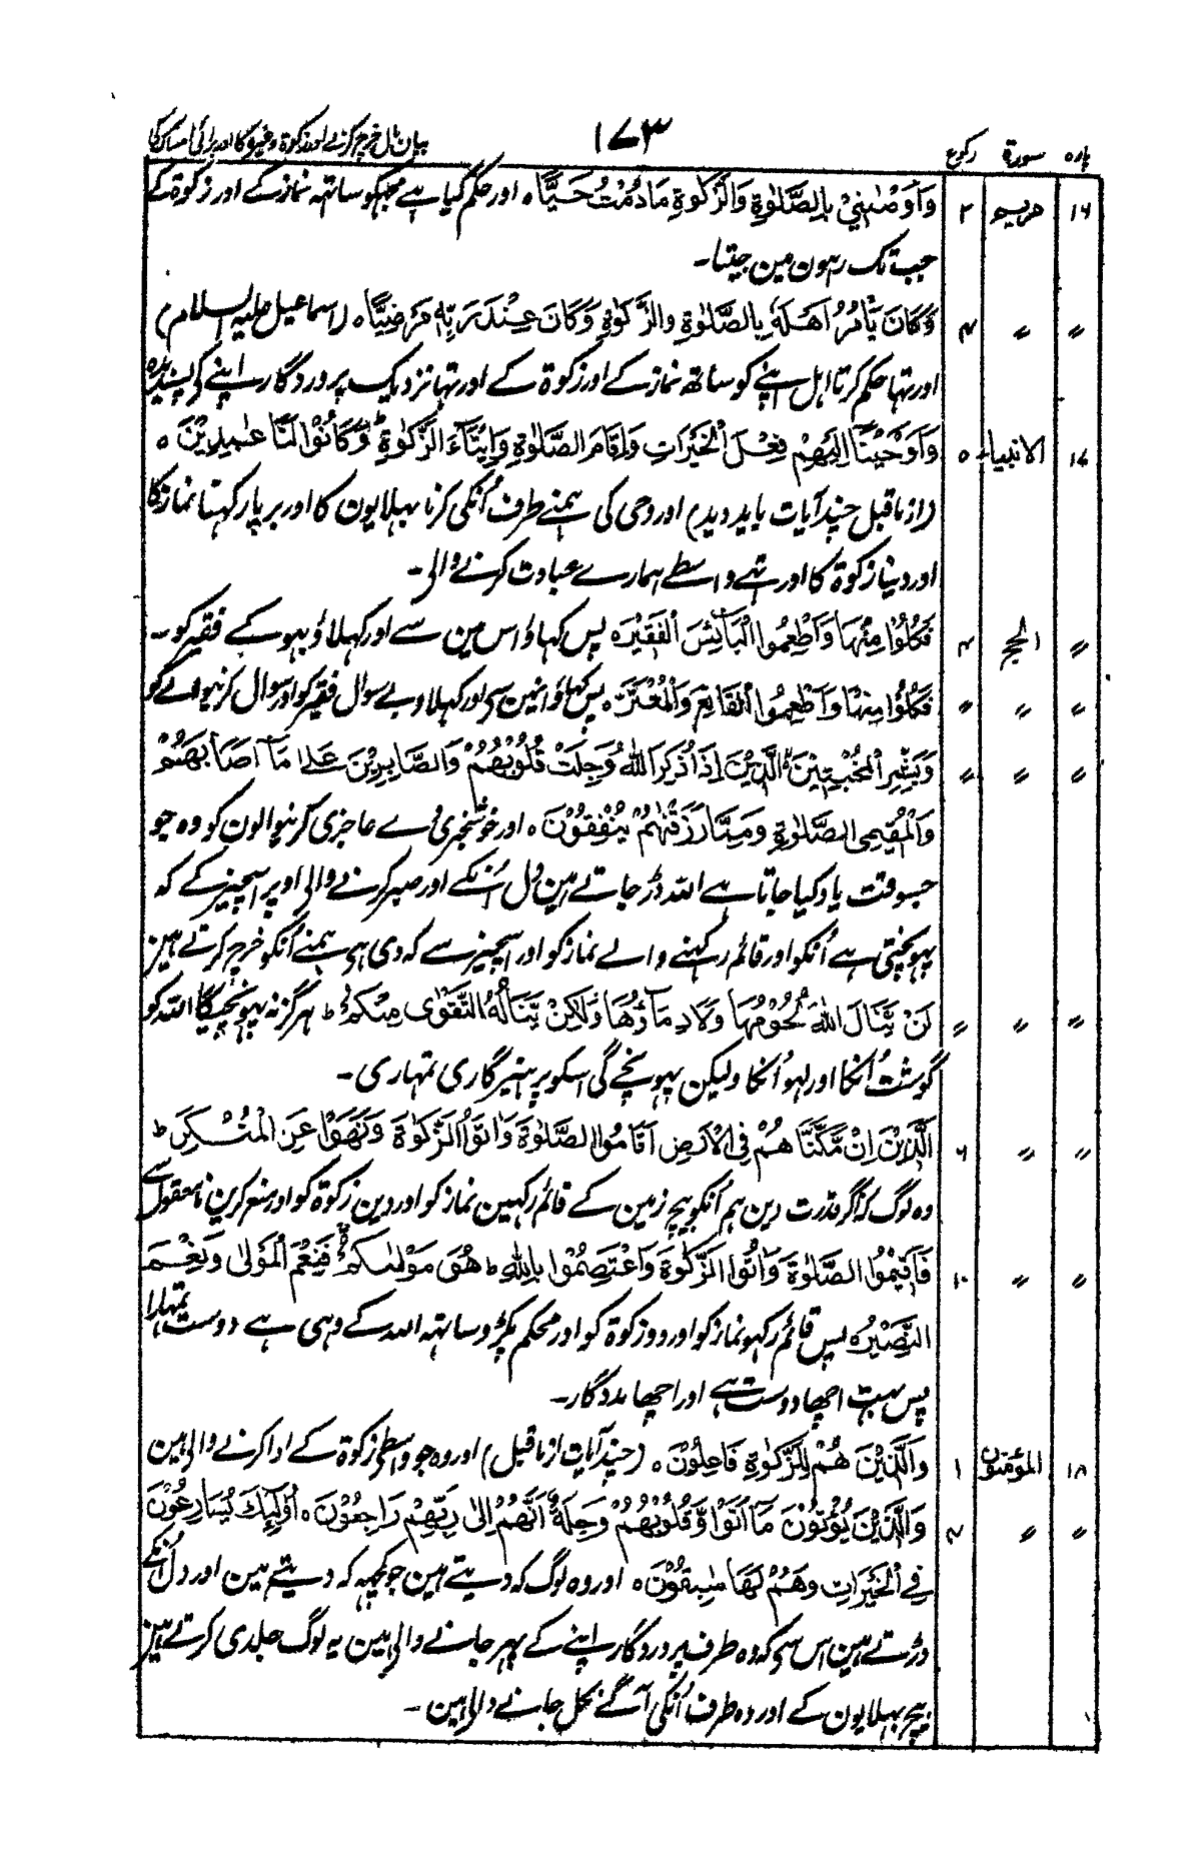 پارہ سورۃ رکوع ۱۷۳ بیان مال خرچ کرنے اور زکوۃ وغیرہ کا اور برائی امساک کی
۱۶ مریم ۲ وَاَوْصٰىنِيْ بِالصَّلٰوةِ وَالزَّكٰوةِ مَا دُمْتُ حَيًّا ہ اور حکم کیا ہے مجہکو ساتہہ نماز کے اور زکوۃ کے
جب تک رہون مین جیتا۔
〃 〃 ۴ وَكَانَ يَأْمُرُ اَهْلَهٗ بِالصَّلٰوةِ وَالزَّكٰوةِ وَكَانَ عِنْدَ رَبِّهٖ مَرْضِيًّا ہ (اسماعیل علیہ السلام)
اور تہا حکم کرتا اہل اپنے کو ساتھ نماز کے اور زکوۃ کے اور تہا نزدیک پروردگار اپنے کے پسندیدہ
۱۷ الانبیاء ۵ وَاَوْحَيْنَا اِلَيْهِمْ فِعْلَ الْخَيْرَاتِ وَاِقَامَ الصَّلٰوةِ وَاِيْتَآءَ الزَّكٰوةِ وَكَانُوْا لَنَا عٰبِدِيْنَ ہ
(از ماقبل چند آیات باید دید) اور وحی کی ہمنے طرف اُنکی کرنا بہلایون کا اور برپا رکہنا نماز کا
اور دینا زکوۃ کا اور تہے واسطے ہمارے عبادت کرنے والی۔
〃 الحج ۴ فَكُلُوْا مِنْهَا وَاَطْعِمُوا الْبَآئِسَ الْفَقِيْرَ ہ پس کہاؤ اس مین سے اور کہلاؤ بہوکے فقیر کو۔
〃 〃 〃 فَكُلُوْا مِنْهَا وَاَطْعِمُوا الْقَانِعَ وَالْمُعْتَرَّ ہ پس کہاؤ انمین سی اور کہلاو بے سوال فقیر کو اور سوال کرنیوالے کو
〃 〃 〃 وَبَشِّرِ الْمُخْبِتِيْنَ الَّذِيْنَ اِذَا ذُكِرَ اللّٰهُ وَجِلَتْ قُلُوْبُهُمْ وَالصَّابِرِيْنَ عَلٰى مَآ اَصَابَهُمْ
وَالْمُقِيْمِى الصَّلٰوةِ وَمِمَّا رَزَقْنٰهُمْ يُنْفِقُوْنَ ہ اور خوشخبری دے عاجزی کرنیوالون کو وہ جو
جسوقت یاد کیا جاتا ہے اللہ ڈر جاتے ہین دل اُنکے اور صبر کرنے والی اوپر اسچیز کے کہ
پہونچتی ہے اُنکو اور قائم رکہنے والے نماز کو اور اسچیز سے کہ دی ہی ہمنے اُنکو خرچ کرتے ہین
〃 〃 〃 لَنْ يَّنَالَ اللّٰهَ لُحُوْمُهَا وَلَا دِمَآؤُهَا وَلٰكِنْ يَّنَالُهُ التَّقْوٰى مِنْكُمْ ط ہرگز نہ پہونچیگا اللہ کو
گوشت اُنکا اور لہو اُنکا ولیکن پہونچے گی اسکو پرہیزگاری تمہاری۔
〃 〃 ۶ اَلَّذِيْنَ اِنْ مَّكَّنَّا هُمْ فِى الْاَرْضِ اَقَامُوا الصَّلٰوةَ وَاٰتَوُا الزَّكٰوةَ وَنَهَوْا عَنِ الْمُنْكَرِ ط
وہ لوگ کہ اگر قدرت دین ہم اُنکو بیچ زمین کے قائم رکہین نماز کو اور دین زکوۃ کو اور منع کرین نامعقول سے
〃 〃 ۱۰ فَاَقِيْمُوا الصَّلٰوةَ وَاٰتُوا الزَّكٰوةَ وَاعْتَصِمُوْا بِاللّٰهِ ط هُوَ مَوْلٰىكُمْ فَنِعْمَ الْمَوْلٰى وَنِعْمَ
النَّصِيْرُ ہ پس قائم رکہو نماز کو اور دو زکوۃ کو اور محکم پکڑو ساتہہ اللہ کے وہی ہے دوست تمہارا
پس بہت اچہا دوست ہے اور اچہا مددگار۔
۱۸ المؤمنون ۱ وَالَّذِيْنَ هُمْ لِلزَّكٰوةِ فَاعِلُوْنَ ہ (چند آیات از ماقبل) اور وہ جو واسطی زکوۃ کے ادا کرنے والی ہین
〃 〃 ۴ وَالَّذِيْنَ يُؤْتُوْنَ مَآ اٰتَوْا وَّقُلُوْبُهُمْ وَجِلَةٌ اَنَّهُمْ اِلٰى رَبِّهِمْ رَاجِعُوْنَ ہ اُولٰٓئِكَ يُسَارِعُوْنَ
فِى الْخَيْرَاتِ وَهُمْ لَهَا سٰبِقُوْنَ ہ اور وہ لوگ کہ دیتے ہین جو کچہہ کہ دیتے ہین اور دل اُنکے
ڈرتے ہین اس سی کہ وہ طرف پروردگار اپنے کے پہر جانے والی ہین یہ لوگ جلدی کرتے ہین
بیچ بہلایون کے اور وہ طرف اُنکی آگے نکل جانے والی ہین۔